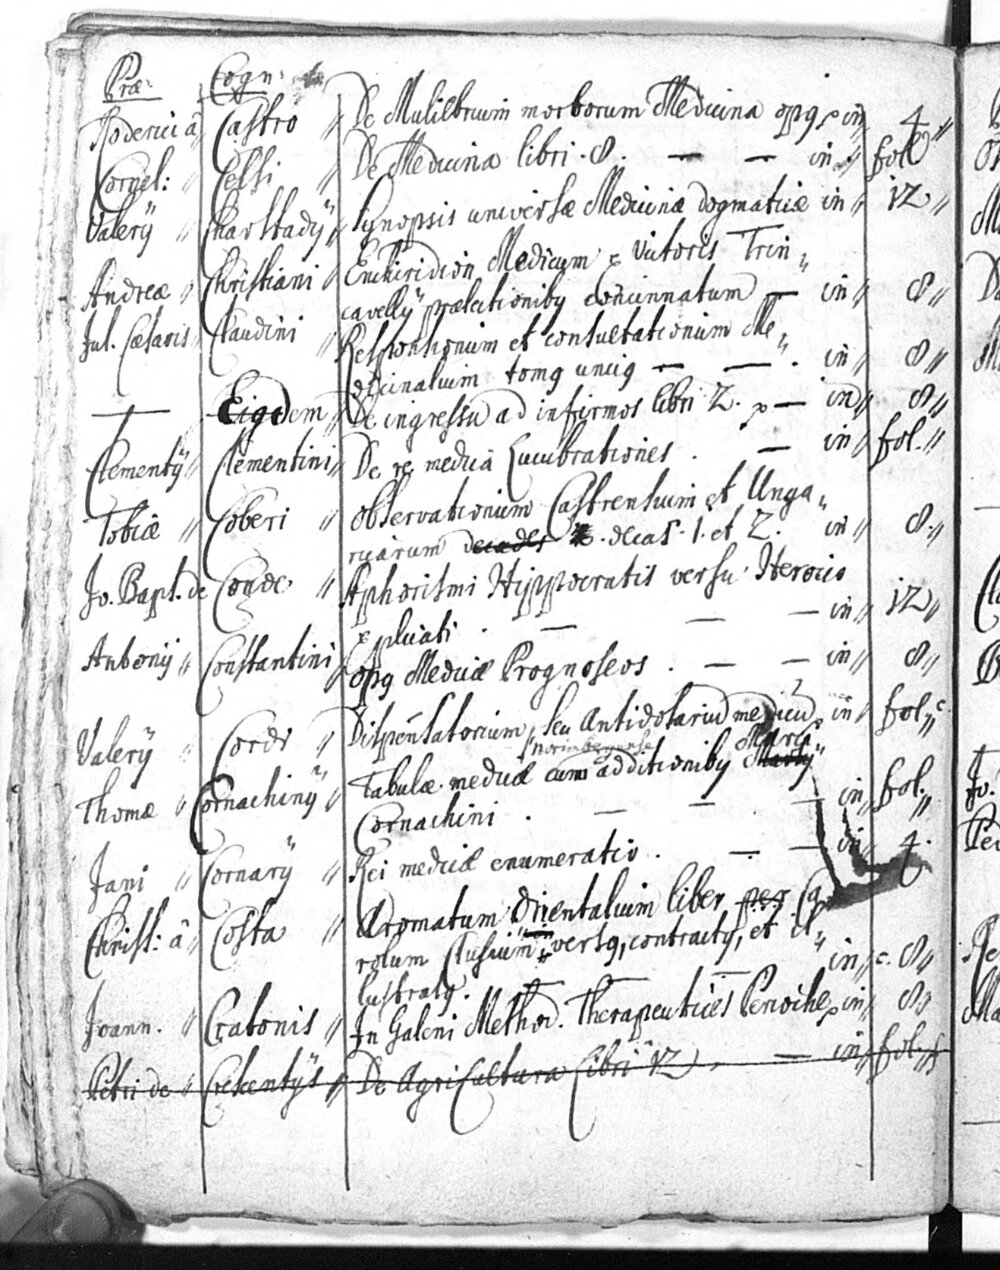 Præ: Cogn:
Roderici â Castro De Muliebrium morborum Medicina opq in 4
Cornel: Celsi De Medicina libri. 8. — — in fol
Valerÿ Charstadÿ Synopsis universæ Medicinæ dogmaticæ in 12
Andreæ Christiani Enchiridion Medicum ex Victoris Trin
cavellÿ prælectionibq concinnatum — in 8
Jul. Cæsaris Claudini Responsionum et consultationum Me
dicinalium tomq unicq — — in 8
— Eiqdem De ingressu ad infirmos libri 2. — in 8
Clementÿ Clementini De re medicâ Lucubrationes. — in fol.
Tobiæ Coberi Observationum Castrensium et Unga
ricarum decades decas. 1. et 2. in 8.
Jo. Bapt. de Conde Aphorismi Hippocratis versu Heroico
explicati. — — — in 12
Antonij Constantini Opq Medicæ Prognoseos. — — in 8
Valerÿ Cordi Dispensatorium, seu Antidotariu in fol. c.
norimbergense
Thomæ Cornachinÿ Tabulæ medicæ cum additionibq Marci
Cornachini. — — — in fol.
Jani Cornarÿ Rei medicæ enumeratio. — — in 4.
Christ: â Costa Aromatum Orientalium liber per Ca
rolum Clusium versq, contractq, et il
lustratq. — — in c. 8
Joann. Cratonis In Galeni Method. Therapeutices Perioche, in 8
Petri de Crescentÿs De Agricultura Libri 12, — in fol.